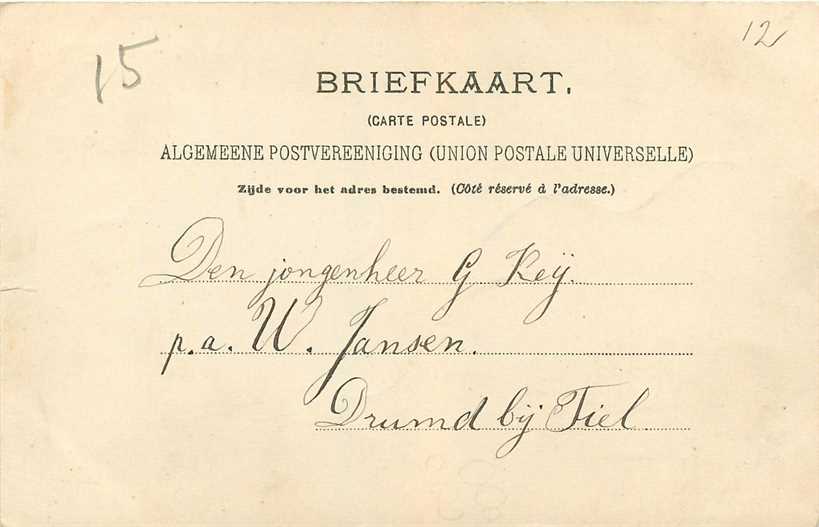 15
12
BRIEFKAART.
(CARTE POSTALE)
ALGEMEENE POSTVEREENIGING (UNION POSTALE UNIVERSELLE)
Zijde voor het adres bestemd. (Côté réservé à l'adresse.)
Den jongenheer G Keÿ.
p.a. W. Jansen.
Drumd bij Tiel